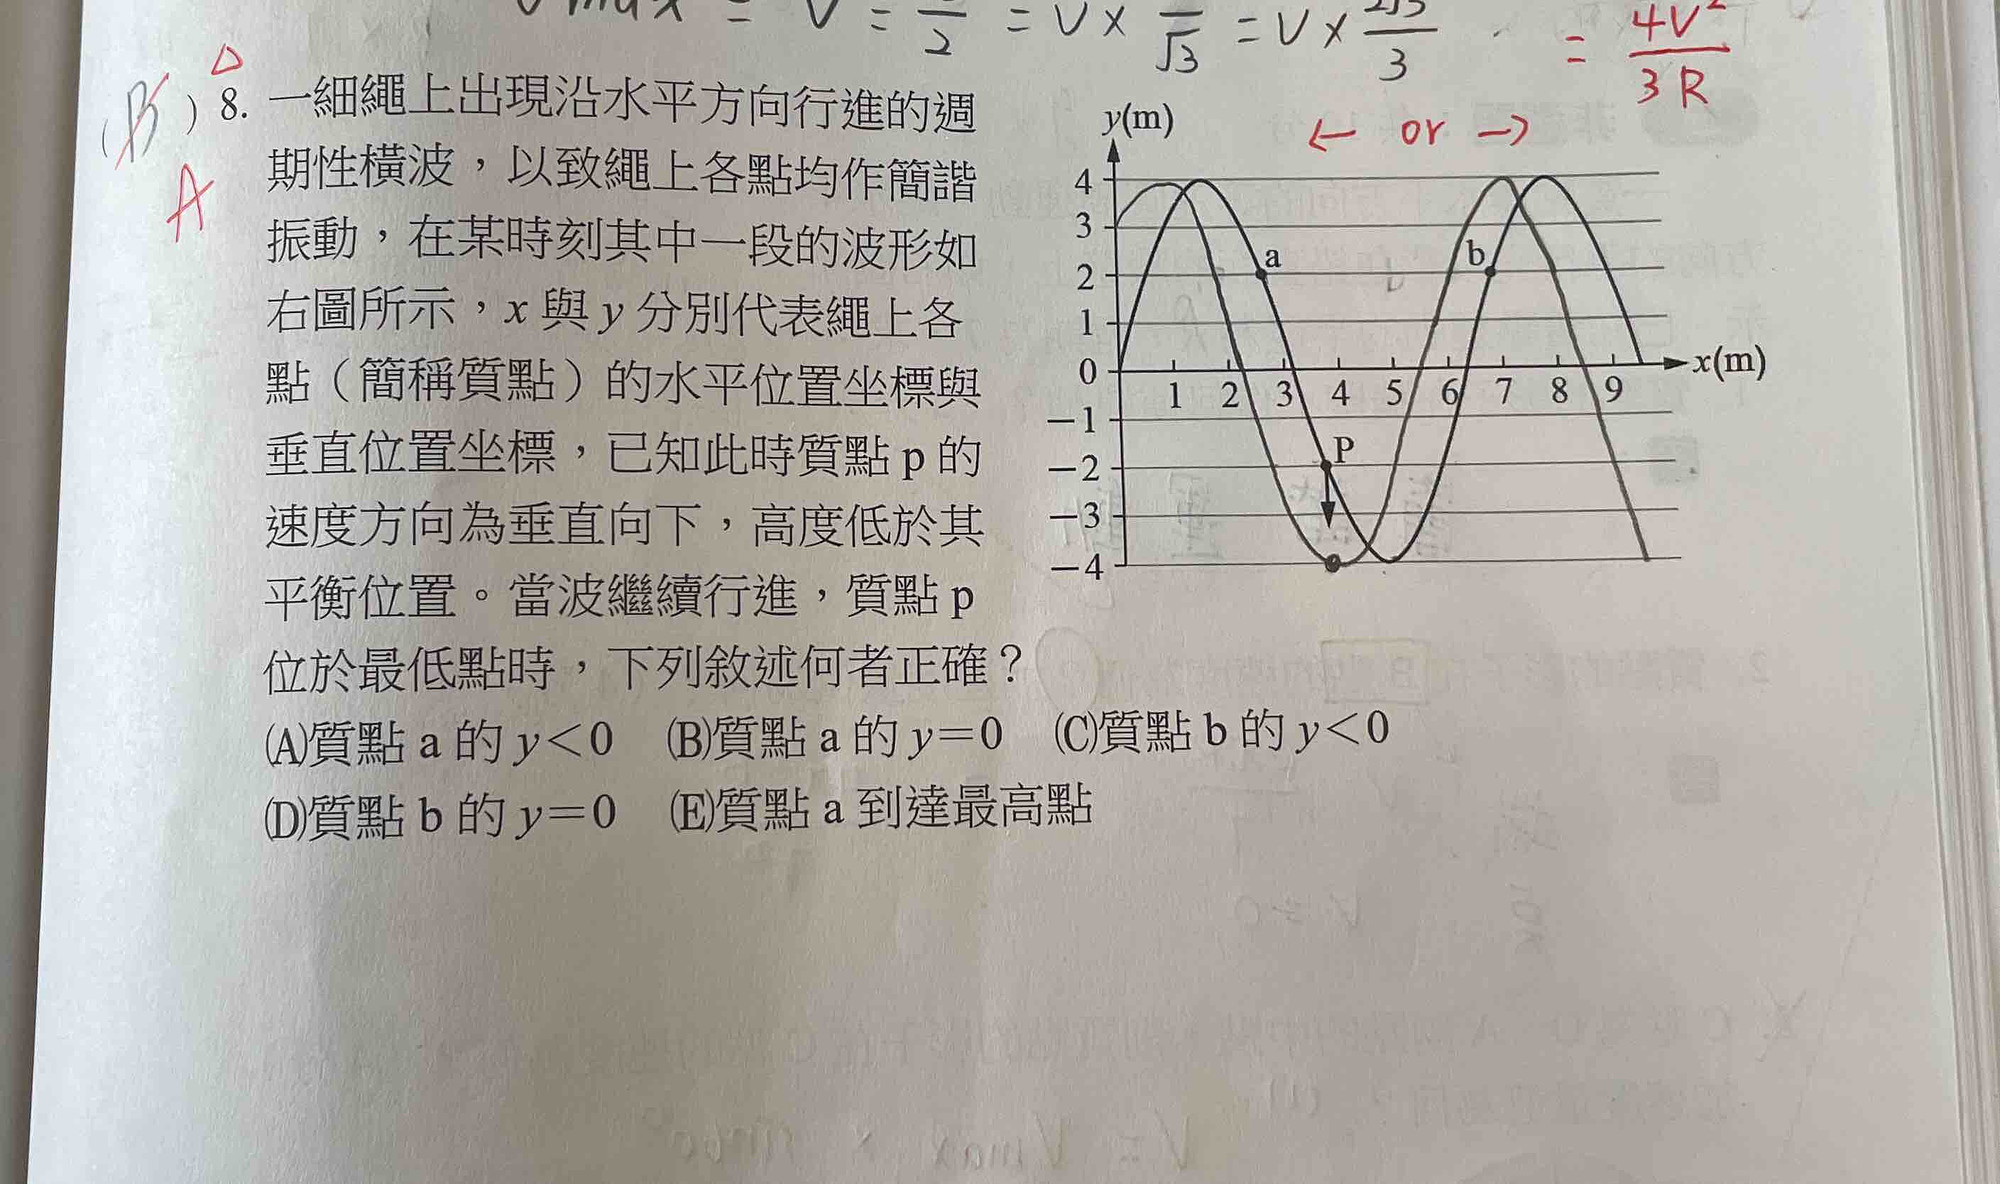 = V = — = V × — = V × 2√3 = 4V²
2 √3 3 3R
(B) 8. 一細繩上出現沿水平方向行進的週
A
期性橫波，以致繩上各點均作簡諧
振動，在某時刻其中一段的波形如
右圖所示，x 與 y 分別代表繩上各
點（簡稱質點）的水平位置坐標與
垂直位置坐標，已知此時質點 p 的
速度方向為垂直向下，高度低於其
平衡位置。當波繼續行進，質點 p
位於最低點時，下列敘述何者正確？
(A)質點 a 的 y＜0 (B)質點 a 的 y＝0 (C)質點 b 的 y＜0
(D)質點 b 的 y＝0 (E)質點 a 到達最高點
y(m)
← or →
4
3
2
1
0
−1
−2
−3
−4
a
b
P
1 2 3 4 5 6 7 8 9
x(m)